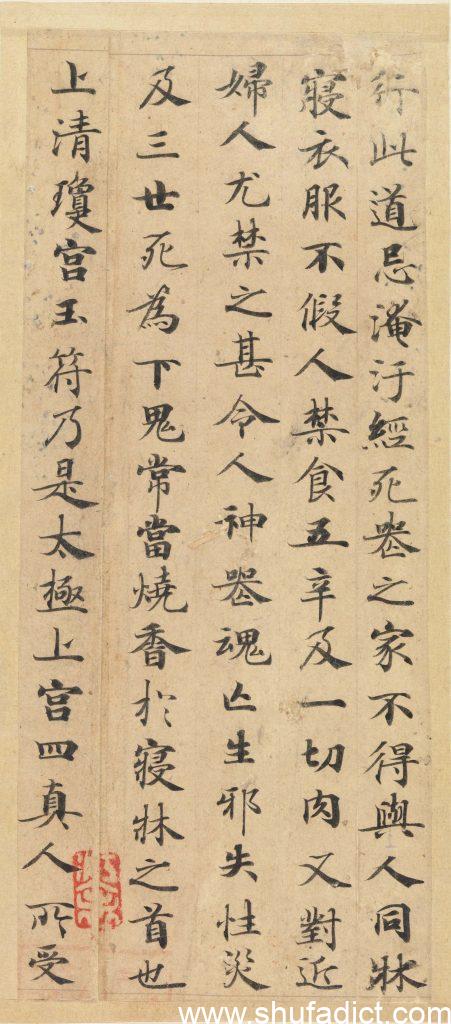 行此道忌淹汙經死喪之家不得與人同牀
寢衣服不假人禁食五辛及一切肉又對近
婦人尤禁之甚令人神喪魂亡生邪失性災
及三世死為下鬼常當燒香於寢牀之首也
上清瓊宮玉符乃是太極上宮四真人所受
www.shufadict.com